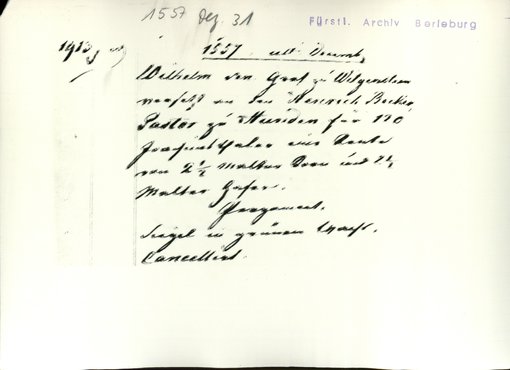 1557 Dez. 31
Fürstl. Archiv Berleburg
1557 ult. Decemb.
Wilhelm der Graf zu Witgenstein
versetzt an den Henrich Becker,
Pastor zu für 110
Joachimsthaler eine Rente
von 2 1/2 Malter Korn und 2 1/2
Malter Hafer.
Pergament.
Siegel in grünem Wachs.
Cancellirt.